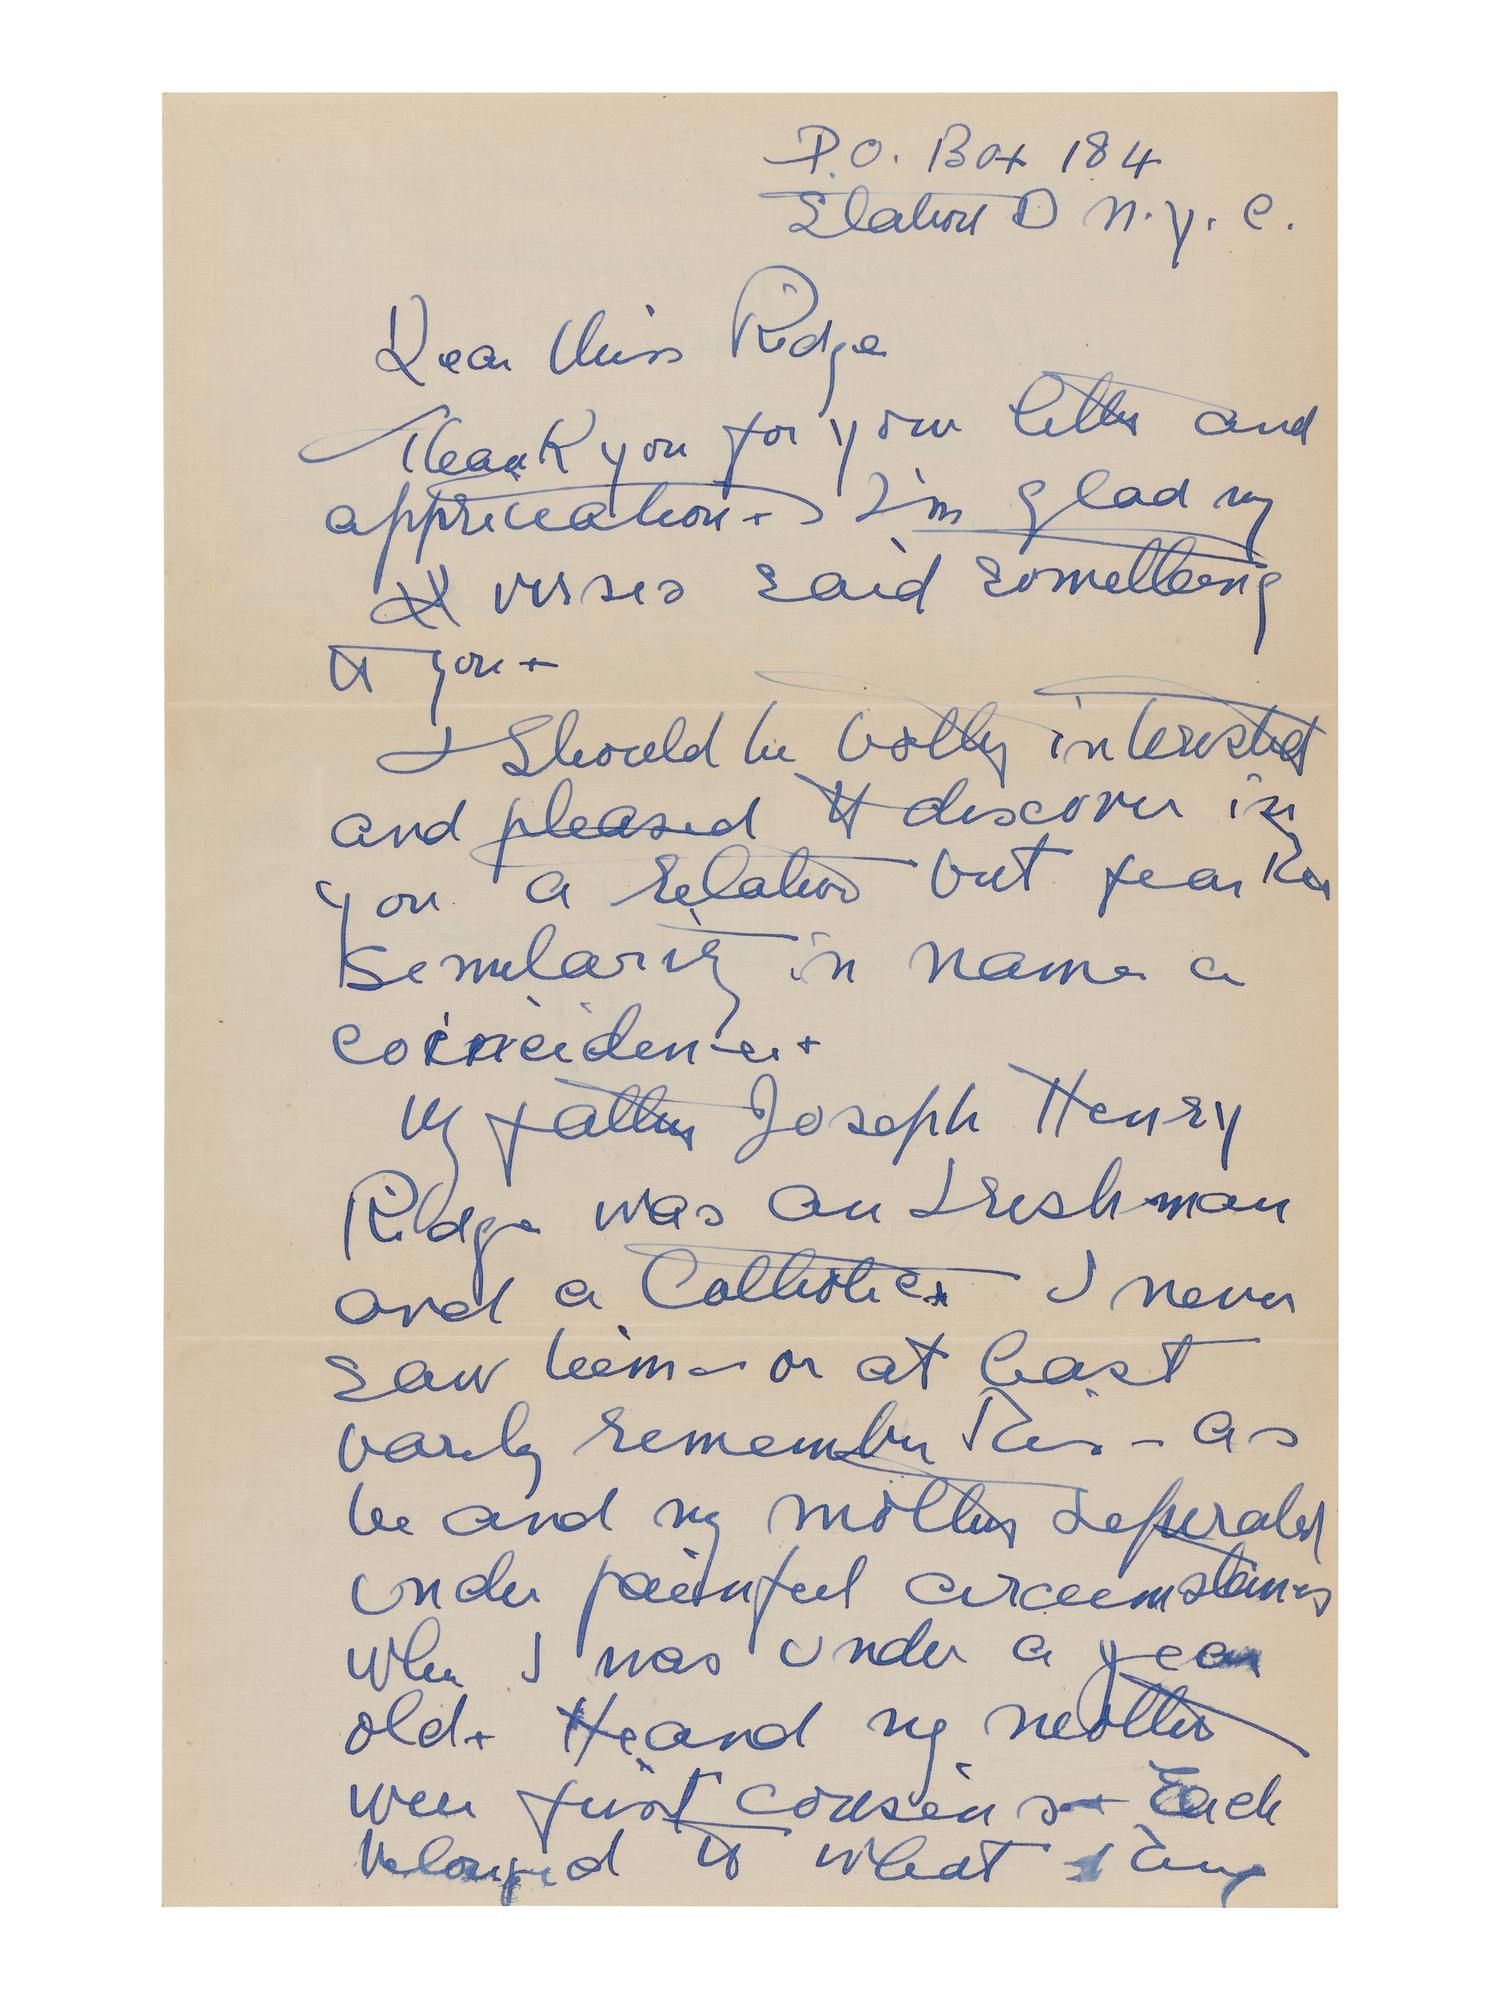 P.O. Box 184
Station D N.Y.C.
Dear Miss Ridge
Thank you for your letter and
appriciation. I'm glad my
verses said something
to you.
I should be bothy interested
and pleased to discover in
you a relative but fear the
semilarity in name a
coincidence.
My father Joseph Henry
Ridge was an Ireshman
and a Catholic. I never
saw him – or at least
barely remember this – as
he and my mother seperated
under painful circumstances
when I was under a year
old. He and my mother
were first cousins. Each
belonged to what they